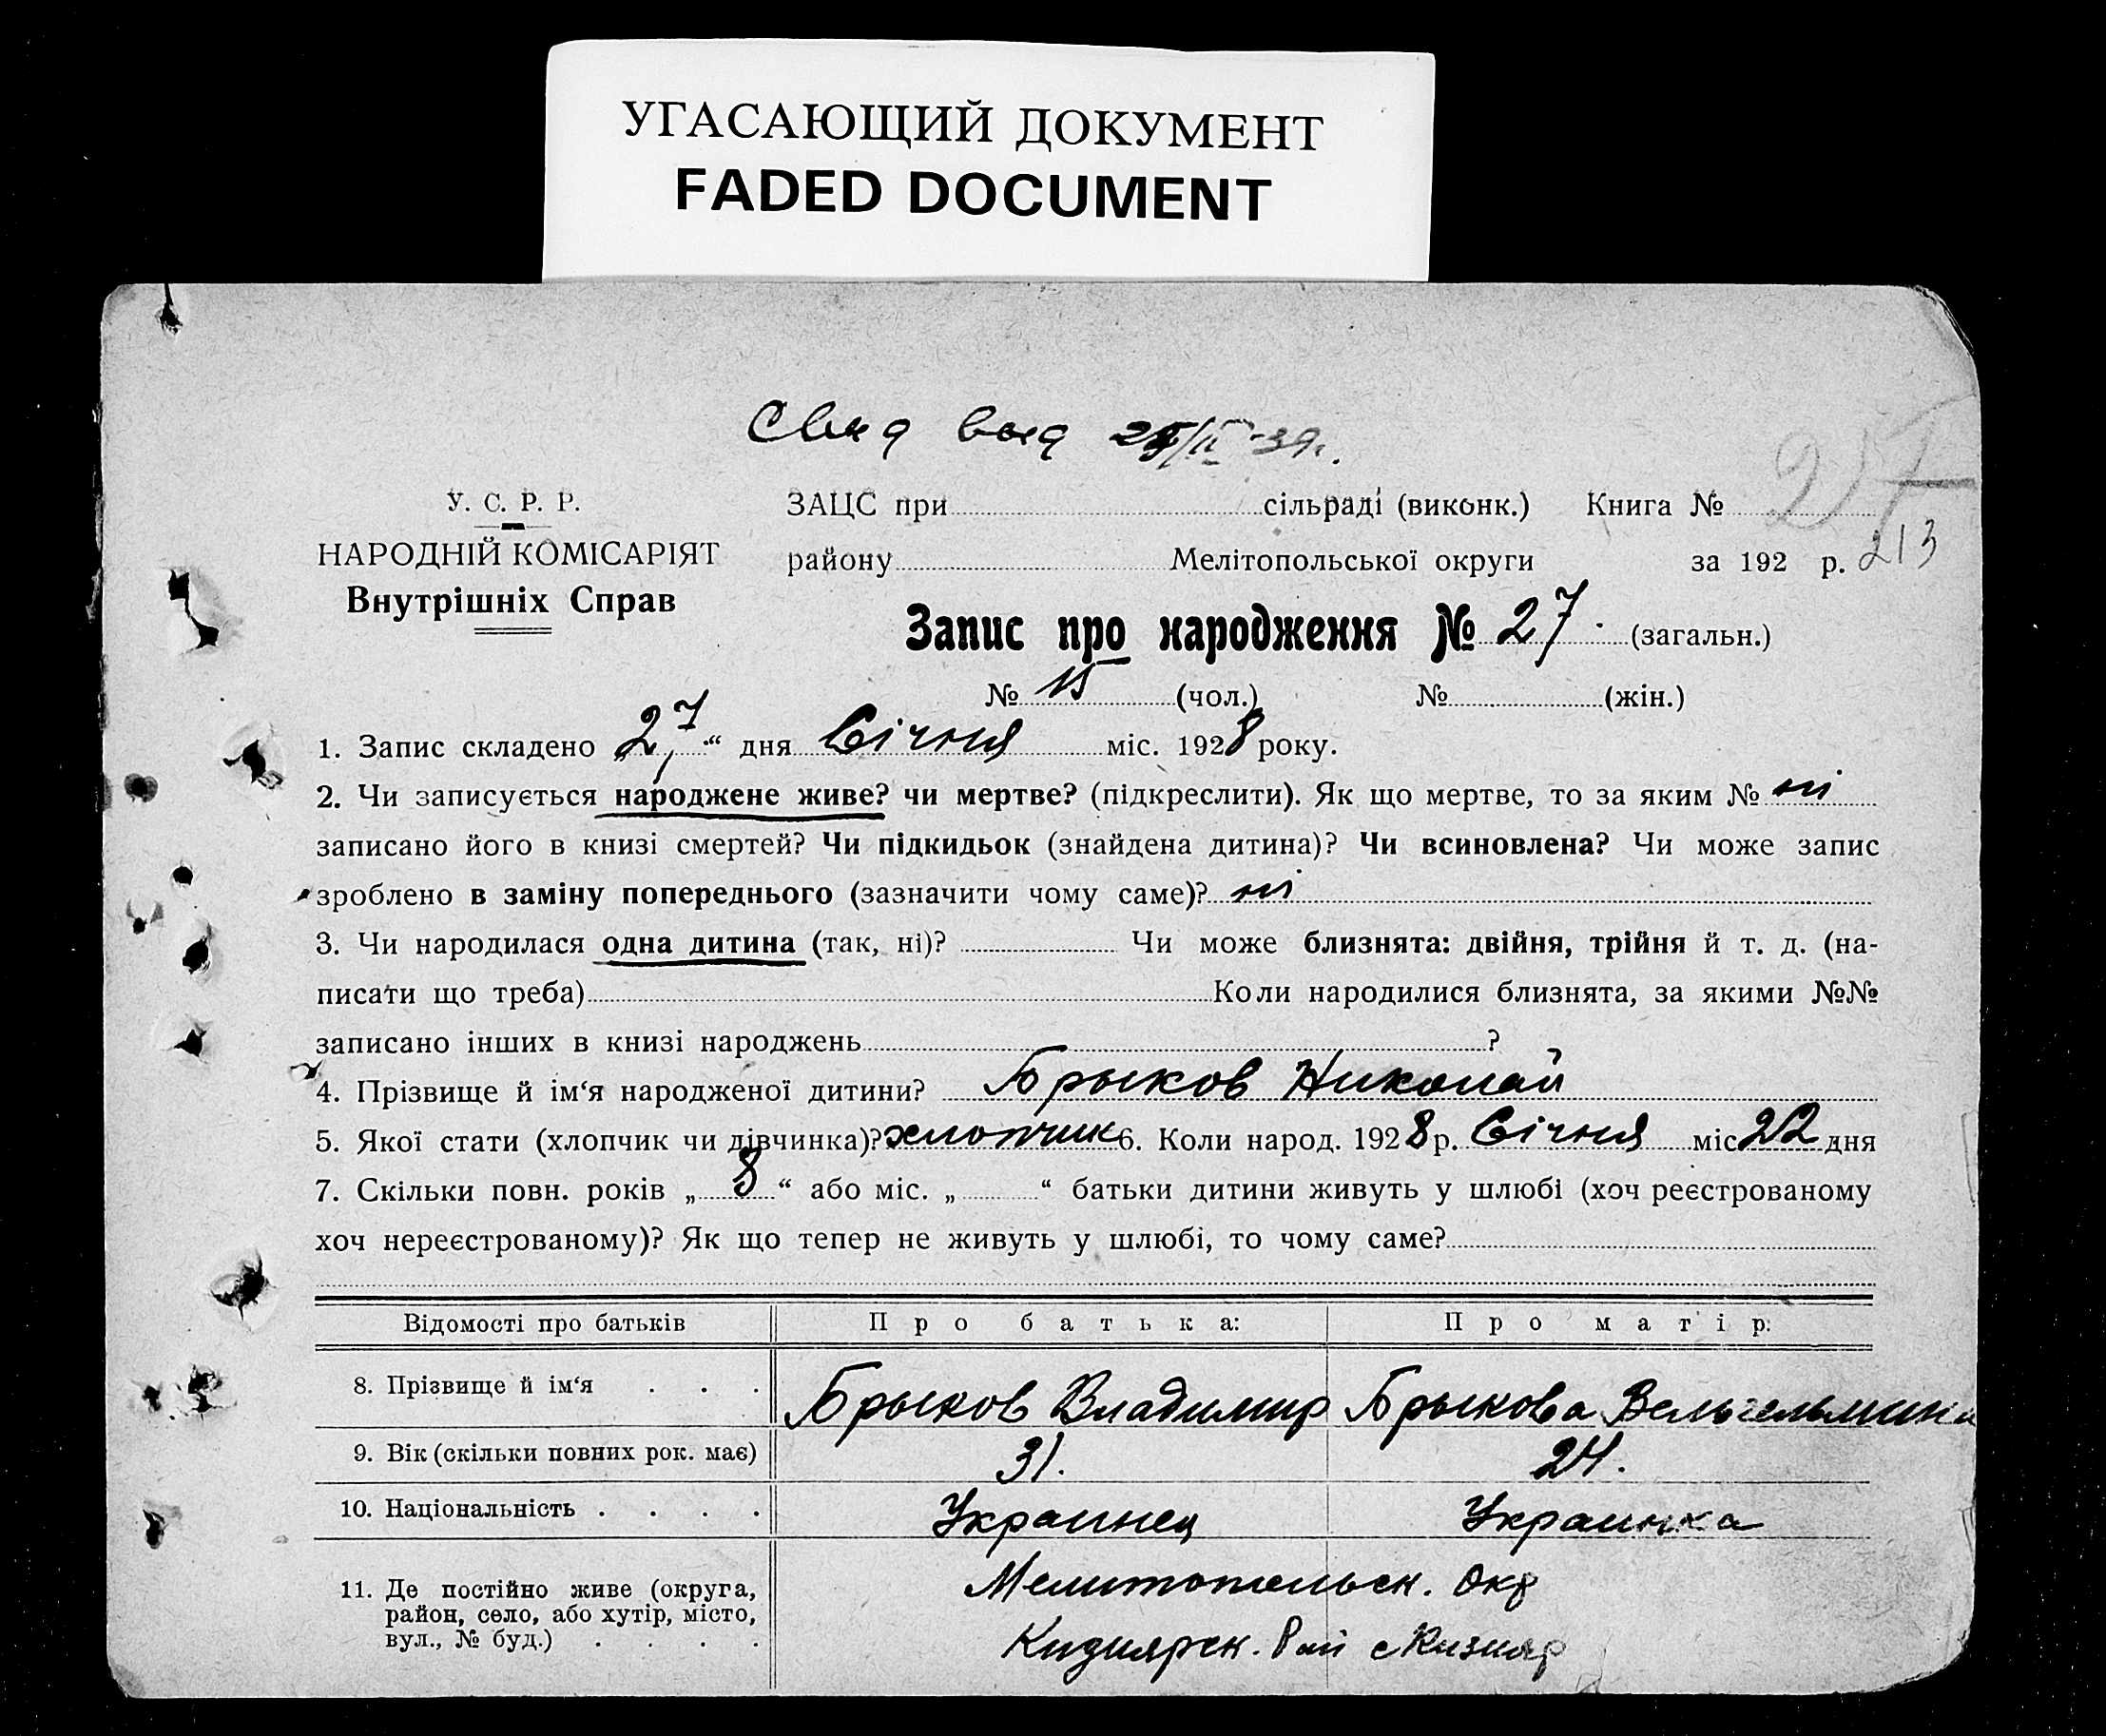 УГАСАЮЩИЙ ДОКУМЕНТ
FADED DOCUMENT
Свид выд
У. С. Р. Р.
НАРОДНІЙ КОМІСАРІЯТ
Внутрішніх Справ
ЗАЦС при сільраді (виконк.) Книга №
району Мелітопольської округи за 192 р. 213
Запис про народження № 27 (загальн.)
№ 15 (чол.) № (жін.)
1. Запис складено „27“ дня Січня міс. 1928 року.
2. Чи записується народжене живе? чи мертве? (підкреслити). Як що мертве, то за яким № ні
записано його в книзі смертей? Чи підкидьок (знайдена дитина)? Чи всиновлена? Чи може запис
зроблено в заміну попереднього (зазначити чому саме)? ні
3. Чи народилася одна дитина (так, ні)? Чи може близнята: двійня, трійня й т. д. (на-
писати що треба) Коли народилися близнята, за якими №№
записано інших в книзі народжень ?
4. Прізвище й ім‘я народженої дитини? Брыков Николай
5. Якої стати (хлопчик чи дівчинка)? хлопчик 6. Коли народ. 1928 р. Січня міс 22 дня
7. Скільки повн. років „8“ або міс. „ “ батьки дитини живуть у шлюбі (хоч реєстрованому
хоч нереєстрованому)? Як що тепер не живуть у шлюбі, то чому саме?
Відомості про батьків Про батька: Про матір:
8. Прізвище й ім‘я . . . Брыков Владимир Брыкова Вельгельмина
9. Вік (скільки повних рок. має) 31. 24.
10. Національність . . . . Украинец Украинка
11. Де постійно живе (округа,
район, село, або хутір, місто,
вул., № буд.) . . . .
Мелитопольск. Окр
Кизиярск. Рай с Кизияр